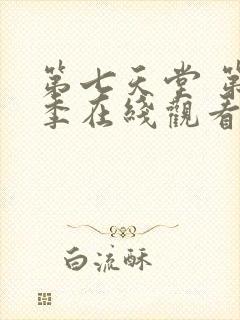 第七天堂 第
季在綫觀看
白流酥